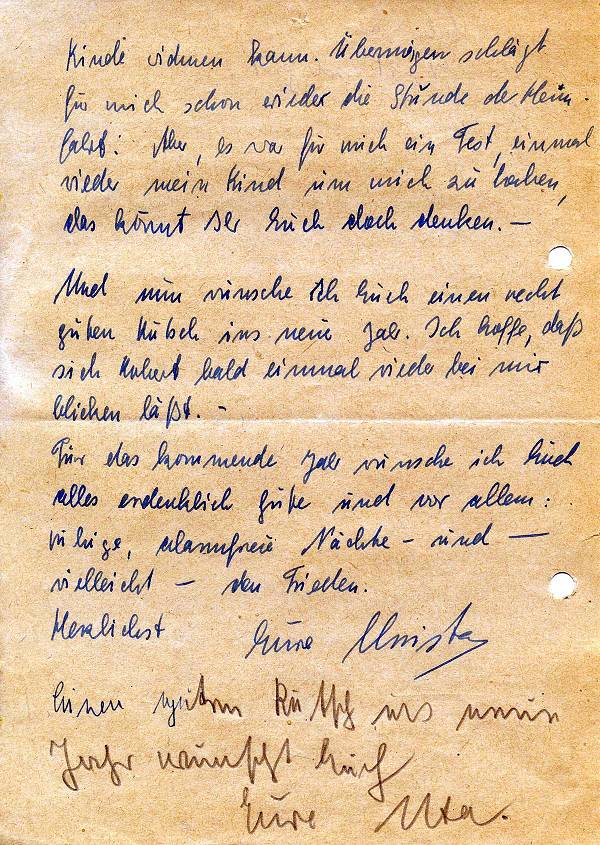 Kinde widmen kann. Übermorgen schlägt
für mich schon wieder die Stunde der Heim-
fahrt. Aber, es war für mich ein Fest, einmal
wieder mein Kind um mich zu haben,
das könnt Ihr Euch doch denken. –
Und nun wünsche ich Euch einen recht
guten Rutsch ins neue Jahr. Ich hoffe, daß
sich Hubert bald einmal wieder bei mir
blicken läßt. –
Für das kommende Jahr wünsche ich Euch
alles erdenklich Gute und vor allem:
ruhige, alarmfreie Nächte – und —
vielleicht – den Frieden.
Herzlichst Eure Christa
Einen guten Rutsch ins neue
Jahr wünscht Euch
Eure Uta.